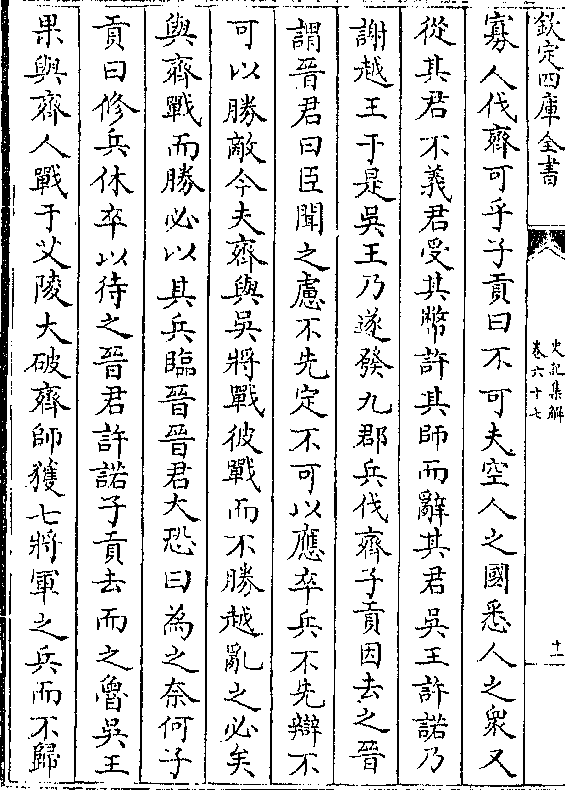 欽定四庫全書
史記集解
卷六十七
十一
寡人伐齊可乎子貢曰不可夫空人之國悉人之衆又
從其君不義君受其幣許其師而辭其君吳王許諾乃
謝越王于是吳王乃遂發九郡兵伐齊子貢因去之晉
謂晉君曰臣聞之慮不先定不可以應卒兵不先辯不
可以勝敵今夫齊與吳將戰彼戰而不勝越亂之必矣
與齊戰而勝必以其兵臨晉晉君大恐曰為之奈何子
貢曰修兵休卒以待之晉君許諾子貢去而之魯吳王
果與齊人戰于艾陵大破齊師獲七將軍之兵而不歸